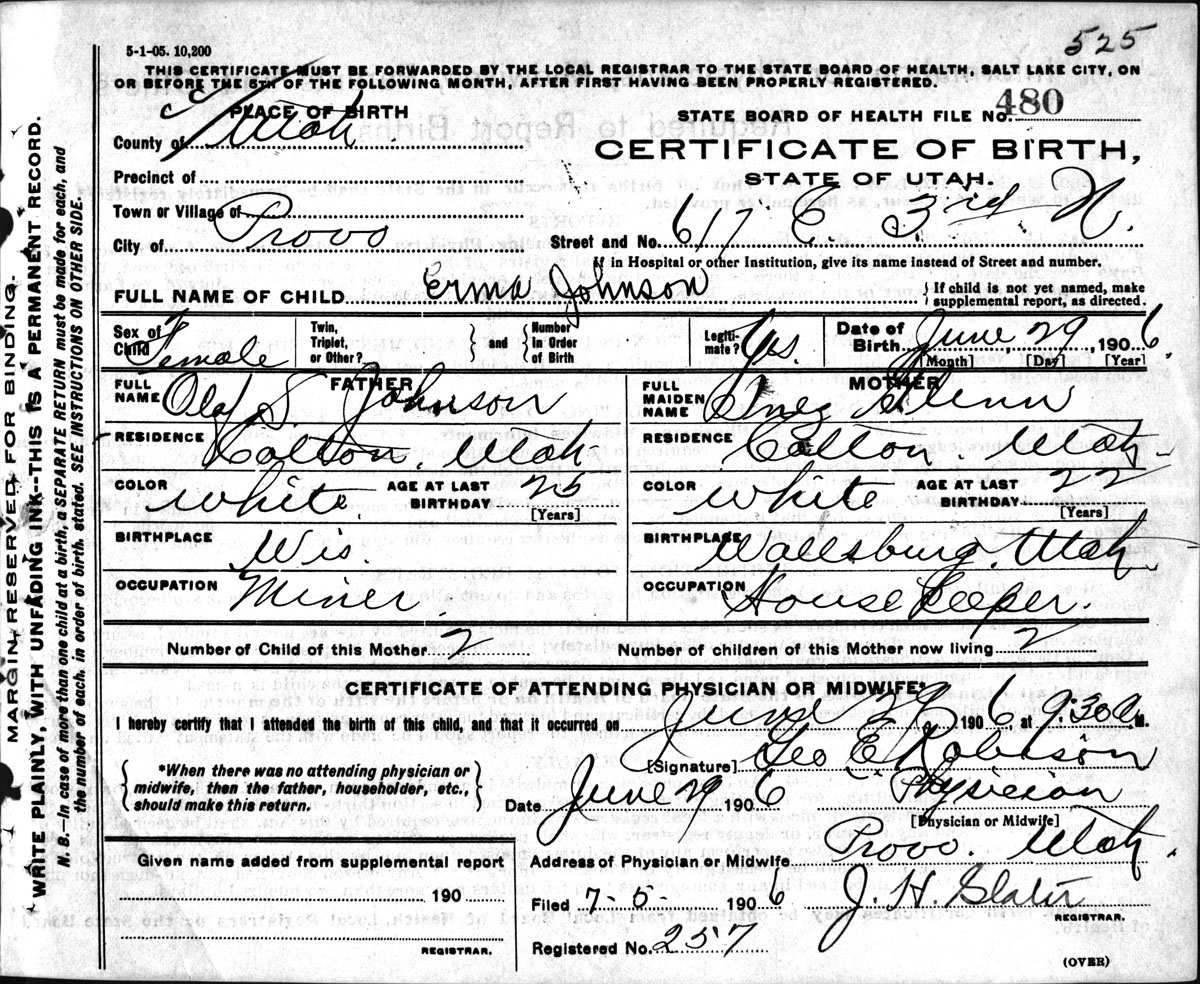 525
5-1-05. 10,200
THIS CERTIFICATE MUST BE FORWARDED BY THE LOCAL REGISTRAR TO THE STATE BOARD OF HEALTH, SALT LAKE CITY, ON
OR BEFORE THE 5TH OF THE FOLLOWING MONTH, AFTER FIRST HAVING BEEN PROPERLY REGISTERED.
PLACE OF BIRTH
STATE BOARD OF HEALTH FILE NO. 480
County of Utah.
CERTIFICATE OF BIRTH,
STATE OF UTAH.
Precinct of
Town or Village of
City of Provo
Street and No. 617 E. 3rd N.
If in Hospital or other Institution, give its name instead of Street and number.
FULL NAME OF CHILD Erma Johnson
{ If child is not yet named, make
supplemental report, as directed.
Sex of Child Female
Twin, Triplet, or Other? } and { Number in Order of Birth
Legiti-mate? Yes.
Date of Birth June 29, 1906.
[Month] [Day] [Year]
FATHER
FULL NAME Olaf S. Johnson
RESIDENCE Colton, Utah
COLOR White. AGE AT LAST BIRTHDAY 25
[Years]
BIRTHPLACE Wis.
OCCUPATION Miner.
MOTHER
FULL MAIDEN NAME Inez Glenn
RESIDENCE Colton. Utah
COLOR White AGE AT LAST BIRTHDAY 22
[Years]
BIRTHPLACE Wallsburg, Utah
OCCUPATION House Keeper.
Number of Child of this Mother 2
Number of children of this Mother now living 2
CERTIFICATE OF ATTENDING PHYSICIAN OR MIDWIFE*
I hereby certify that I attended the birth of this child, and that it occurred on June 29 1906 at 9:30 a M.
[Signature] Geo E. Robison
{ *When there was no attending physician or
midwife, then the father, householder, etc.,
should make this return. }
Date June 29 1906 Physician
[Physician or Midwife]
Given name added from supplemental report
190
REGISTRAR.
Address of Physician or Midwife Provo. Utah.
Filed 7-5- 1906 J. H. Slater
REGISTRAR.
Registered No. 257
(OVER)
MARGIN RESERVED FOR BINDING.
WRITE PLAINLY, WITH UNFADING INK--THIS IS A PERMANENT RECORD.
N. B.—In case of more than one child at a birth, a SEPARATE RETURN must be made for each, and
the number of each, in order of birth, stated. SEE INSTRUCTIONS ON OTHER SIDE.